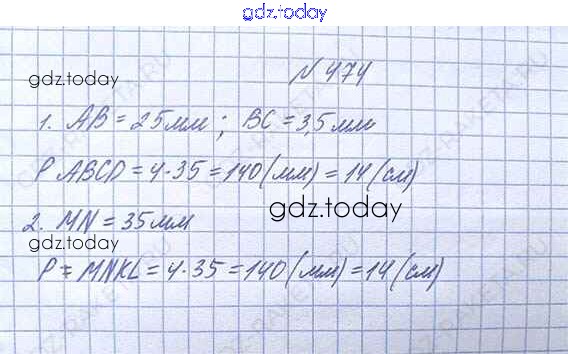 gdz.today
N 474
gdz.today
1. AB = 25 мм ; BC = 3,5 мм
P ABCD = 4·35 = 140 (мм) = 14 (см)
gdz.today
2. MN = 35 мм
gdz.today
P = MNKL = 4·35 = 140 (мм) = 14 (см)